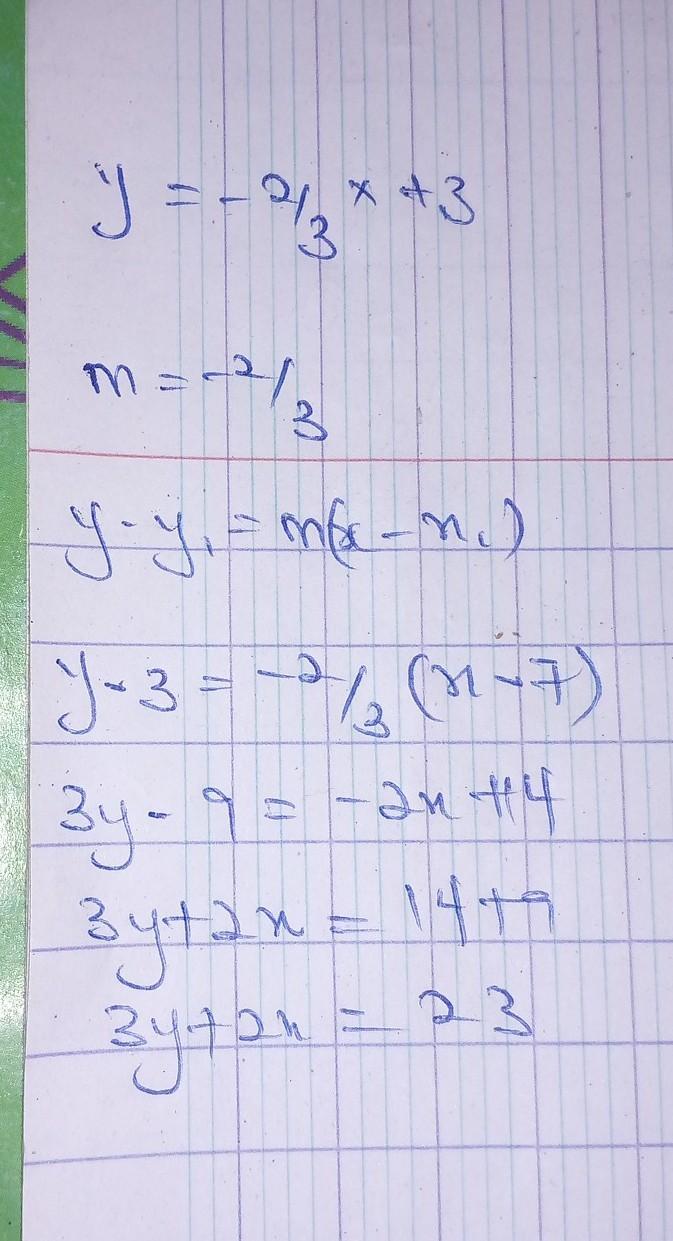 y = -2/3 x + 3
m = -2/3
y - y₁ = m(x - x₁)
y - 3 = -2/3 (x - 7)
3y - 9 = -2x + 14
3y + 2x = 14 + 9
3y + 2x = 23